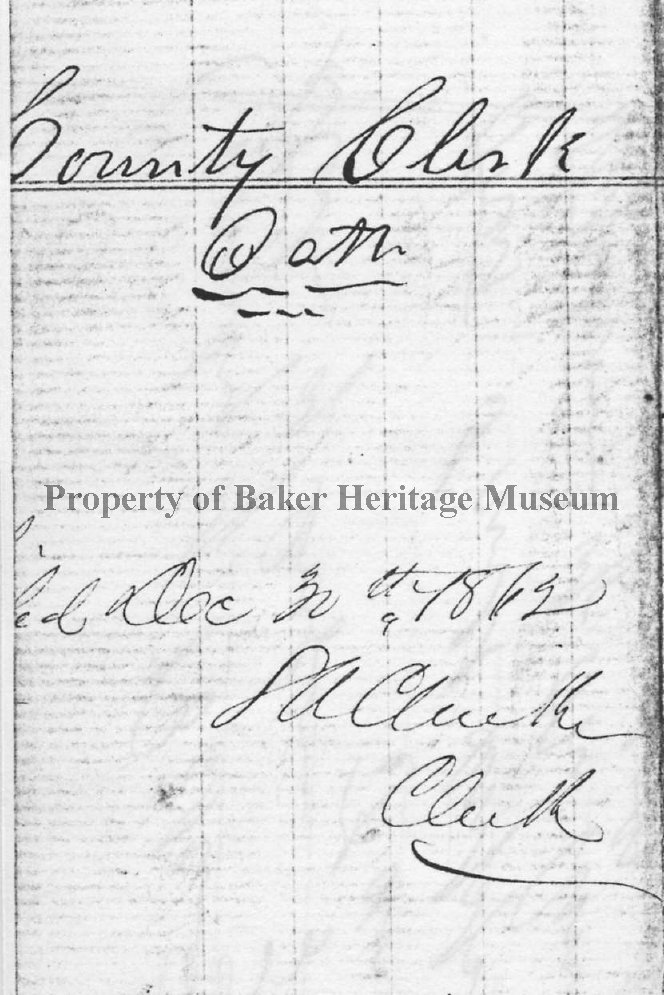 County Clerk
Oath
Property of Baker Heritage Museum
led Dec 30th 1862
SA Clarke
Clerk